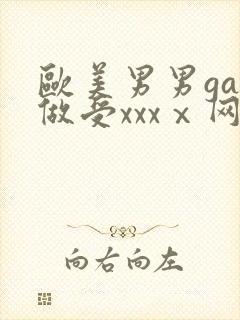 歐美男男ga
做受xxxⅹ网
向右向左